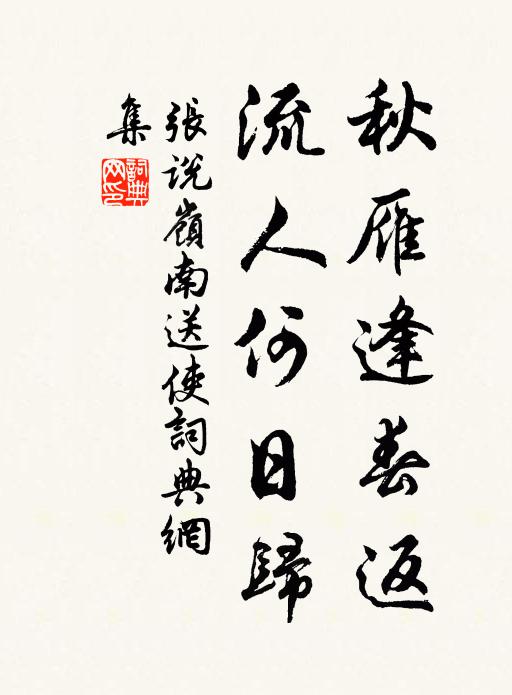 秋雁逢春返
流人何日歸
張說嶺南送使詞典網
集
詞典
網印